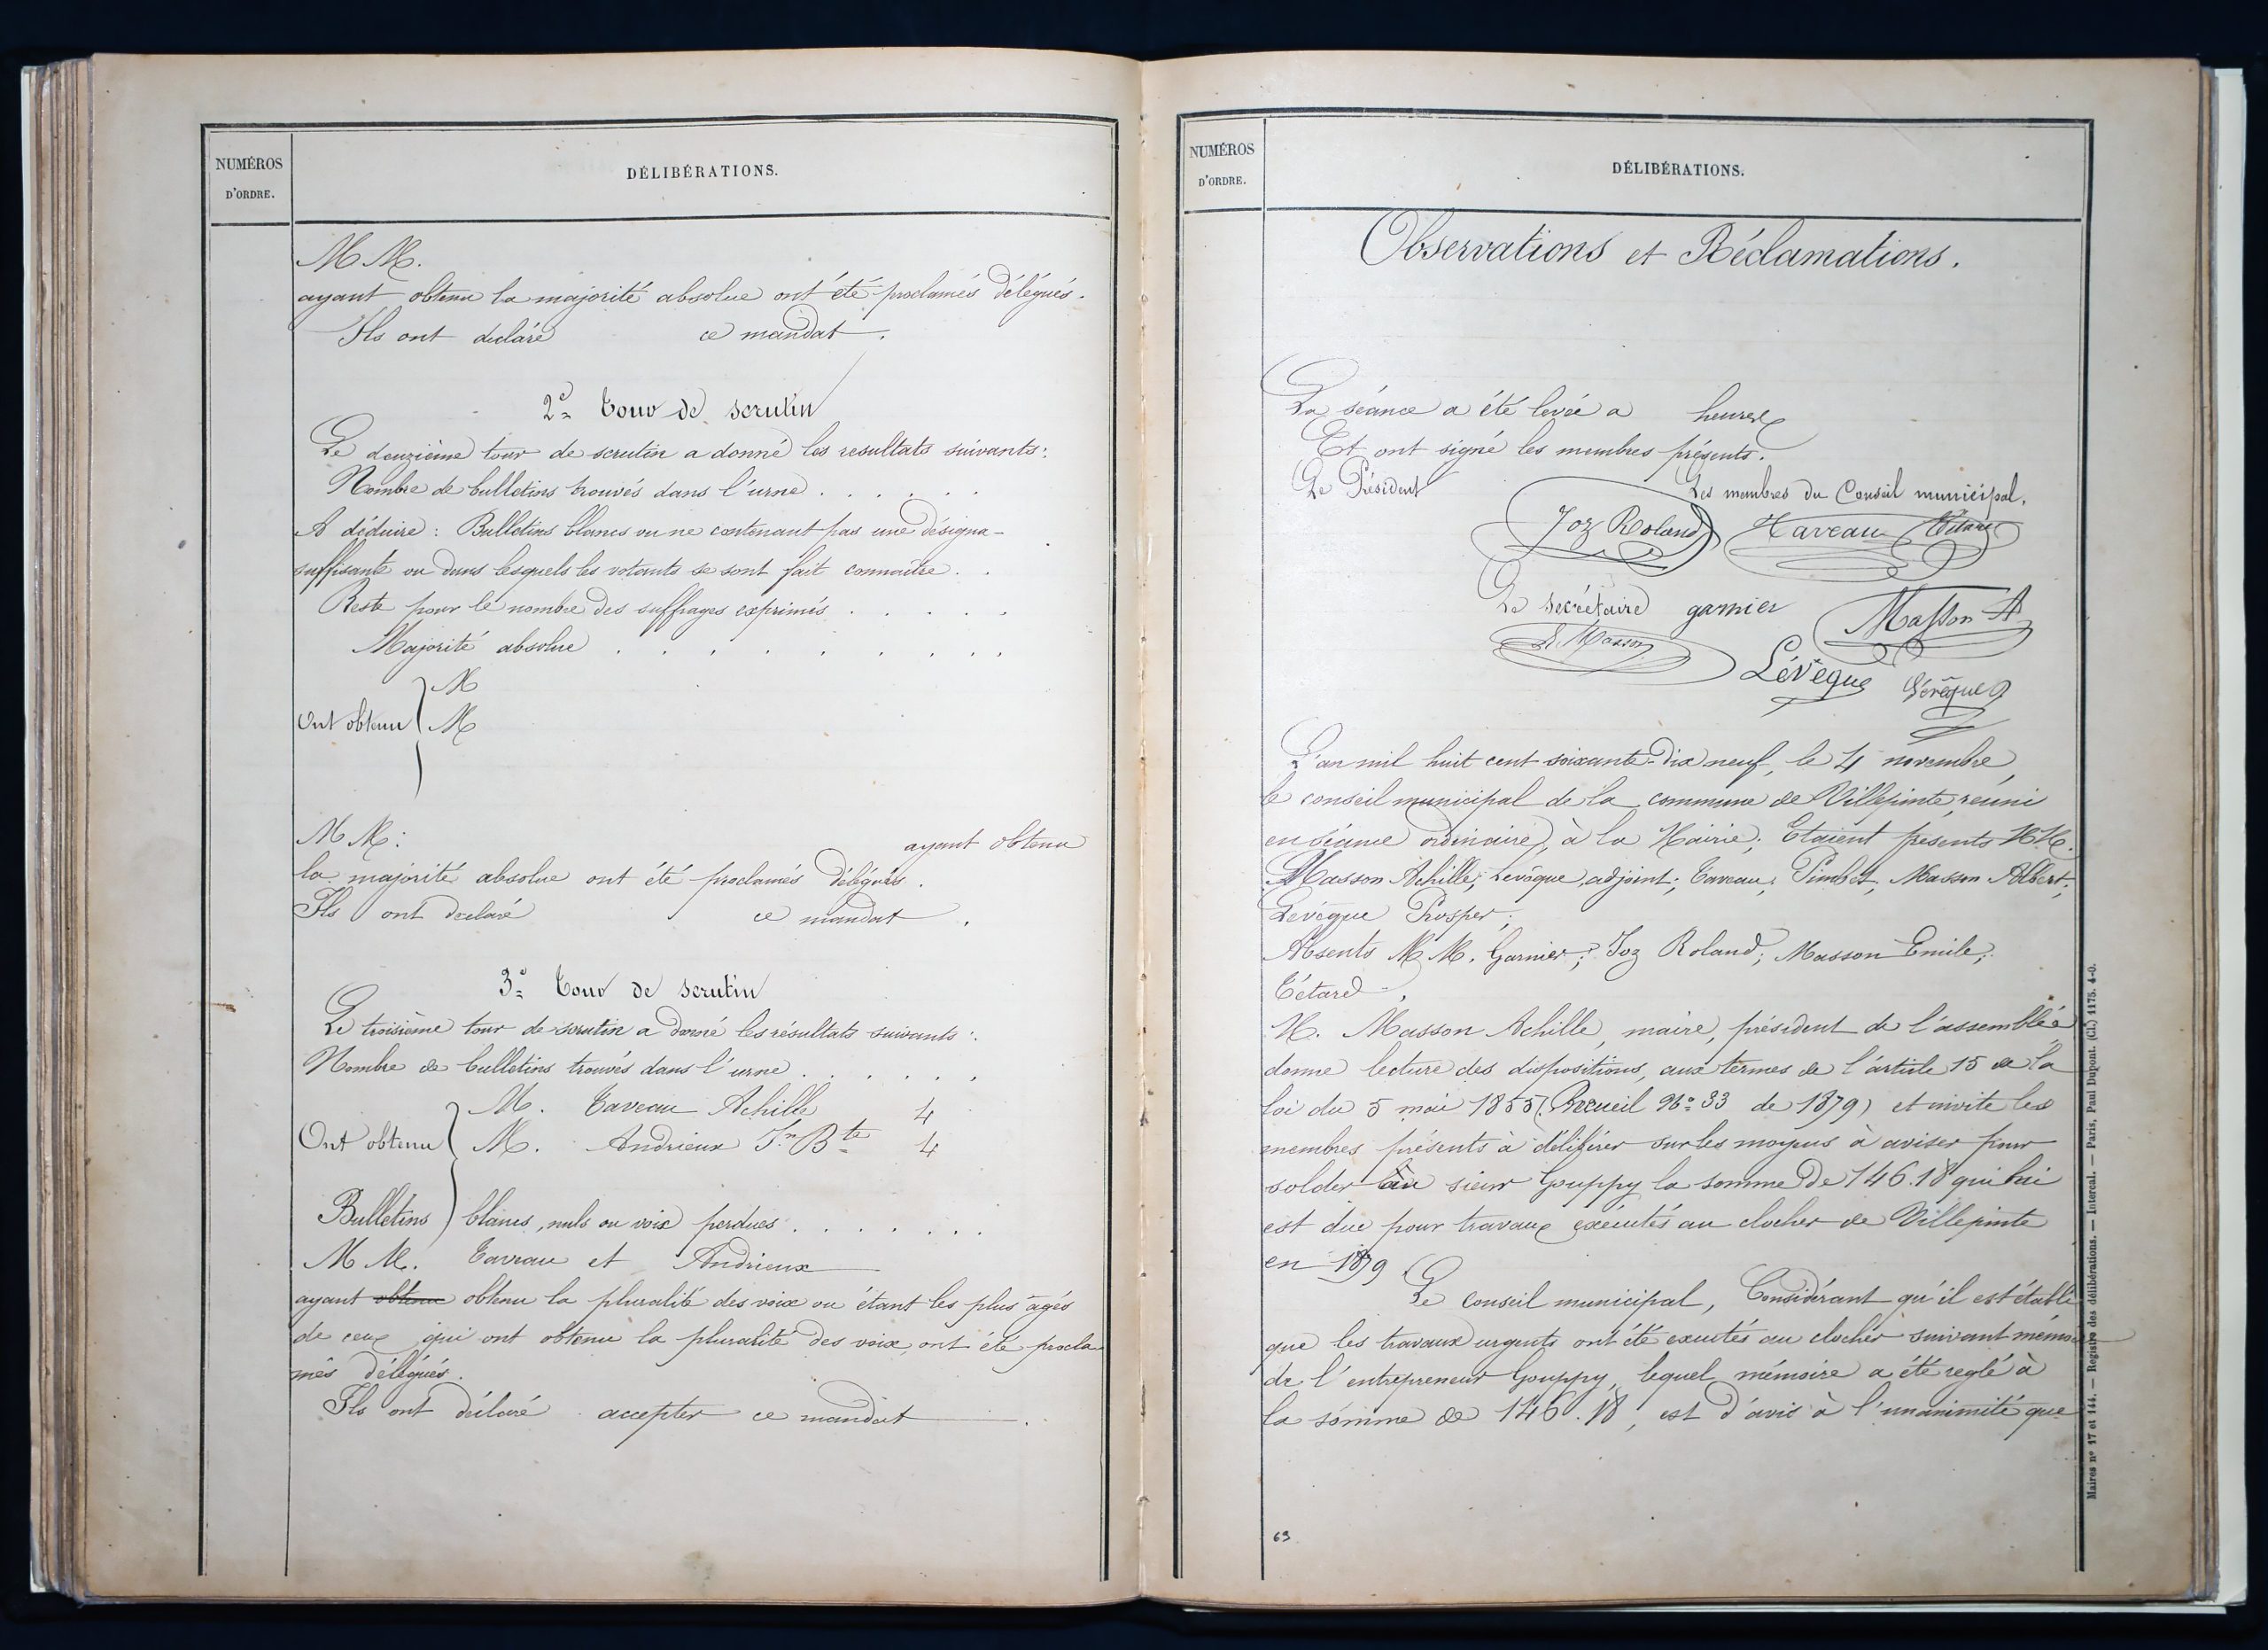 NUMÉROS
D'ORDRE.
DÉLIBÉRATIONS.
M M.
ayant obtenu la majorité absolue ont été proclamés délégués.
Ils ont déclaré ce mandat.
2e Tour de scrutin
Le deuxième tour de scrutin a donné les resultats suivants:
Nombre de bulletins trouvés dans l'urne . . . . . .
A déduire : Bulletins blancs ou ne contenant pas une désigna-
suffisante ou dans lesquels les votants se sont fait connaître . .
Reste pour le nombre des suffrages exprimés . . . . .
Majorité absolue . . . . . . . . .
M
Ont obtenu M
M M:
ayant obtenu
la majorité absolue ont été proclamés délégués.
Ils ont déclaré ce mandat .
3e Tour de scrutin
Le troisième tour de scrutin a donné les résultats suivants :
Nombre de bulletins trouvés dans l'urne . . . . . .
M. Taveau Achille 4
Ont obtenu M. Andrieux Jn Bte 4
Bulletins blancs, nuls ou voix perdues . . . . . . .
M M. Taveau et Andrieux
ayant obtenu obtenu la pluralité des voix ou étant les plus âgés
de ceux qui ont obtenu la pluralité des voix, ont été procla-
més délégués.
Ils ont déclaré accepter ce mandat .
NUMÉROS
D'ORDRE.
DÉLIBÉRATIONS.
Observations et Réclamations.
La séance a été levée a heures
Et ont signé les membres présents.
Le Président Les membres du Conseil municipal.
Joz Roland Taveau Tétard
Le secrétaire garnier Masson A
E. Masson Lévêque Lévêque P
L'an mil huit cent soixante-dix neuf, le 4 novembre,
le conseil municipal de la commune de Villepinte, réuni
en séance ordinaire, à la Mairie; Etaient présents MM.
Masson Achille; Levêque, adjoint; Taveau; Pimbet, Masson Albert;
Levêque Prosper;
Absents M M. Garnier; Joz Roland; Masson Emile;
Tétard.
M. Masson Achille, maire, président de l'assemblée
donne lecture des dispositions, aux termes de l'article 15 de la
loi du 5 mai 1855 (Recueil No 33 de 1879) et invite les
membres présents à délibérer sur les moyens à aviser pour
solder au sieur Gouppy la somme de 146.18 qui lui
est due pour travaux exécutés au clocher de Villepinte
en 1879.
Le conseil municipal, Considérant qu'il est établi
que les travaux urgents ont été exécutés au clocher suivant mémoire
de l'entrepreneur Gouppy, lequel mémoire a été reglé à
la somme de 146.18, est d'avis à l'unanimité que
63
Maires nos 17 et 144. — Registre des délibérations. — Intercal. — Paris, Paul Dupont. (Cl.) 1175. 4-0.